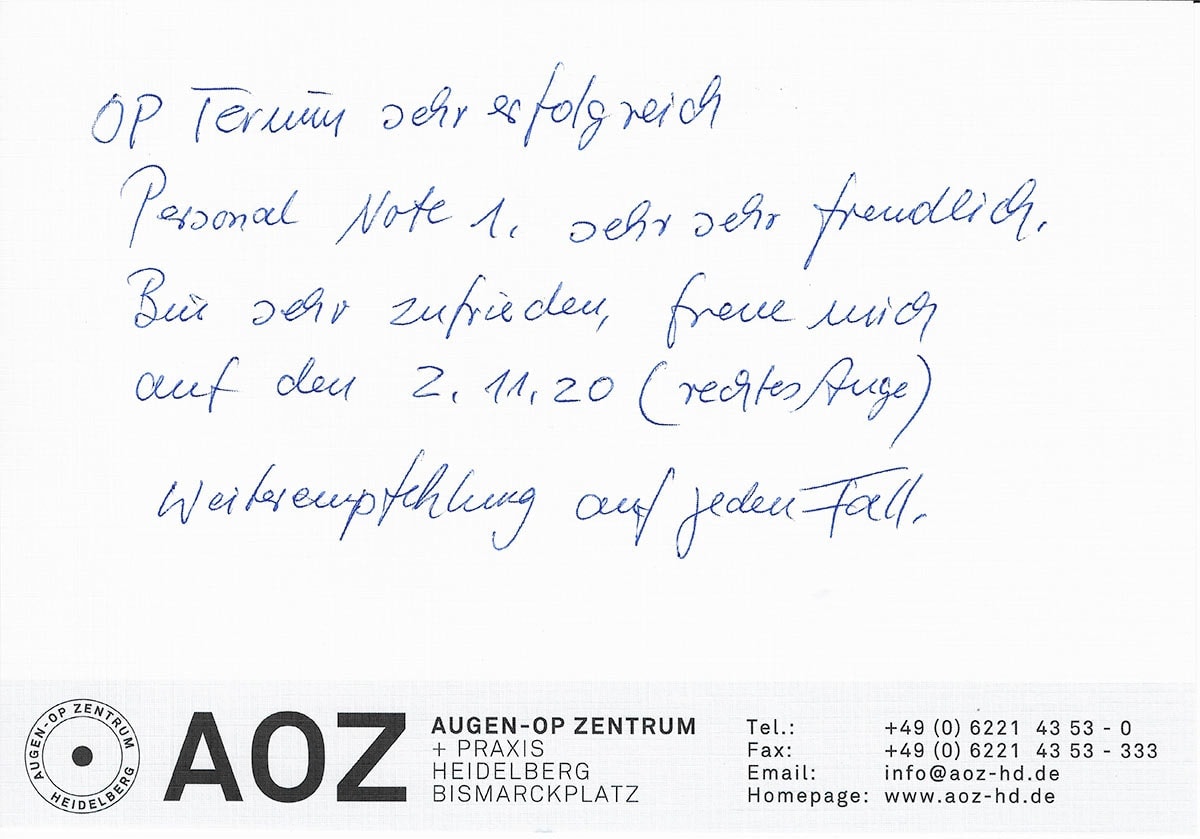 OP Termin sehr erfolgreich
Personal Note 1. sehr sehr freundlich.
Bin sehr zufrieden, freue mich
auf den 2.11.20 (rechtes Auge)
Weiterempfehlung auf jeden Fall.
AUGEN-OP ZENTRUM
HEIDELBERG
AOZ
AUGEN-OP ZENTRUM
+ PRAXIS
HEIDELBERG
BISMARCKPLATZ
Tel.: +49 (0) 6221 43 53 - 0
Fax: +49 (0) 6221 43 53 - 333
Email: info@aoz-hd.de
Homepage: www.aoz-hd.de